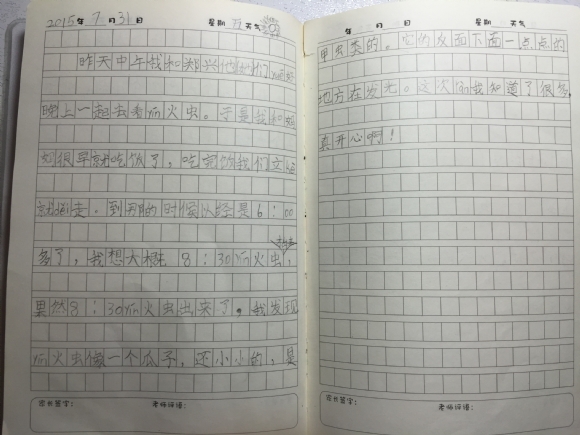 2015年7月31日 星期五天气
昨天中午我和郑兴他们
晚上一起去看yin火虫。于是我和妈
妈很早就吃饭了，吃完饭我们立
就跑走。到那的时候以经是6:00
多了，我想大概8:30yin火虫，
果然8:30yin火虫出来了。我发现
yin火虫像一个瓜子，还小小的，是
家长签字： 老师评语：
年 月 日 星期 天气
甲虫类的。它们反面下面一点点的
地方在发光。这次我知道了很多，
真开心啊！
家长签字： 老师评语：